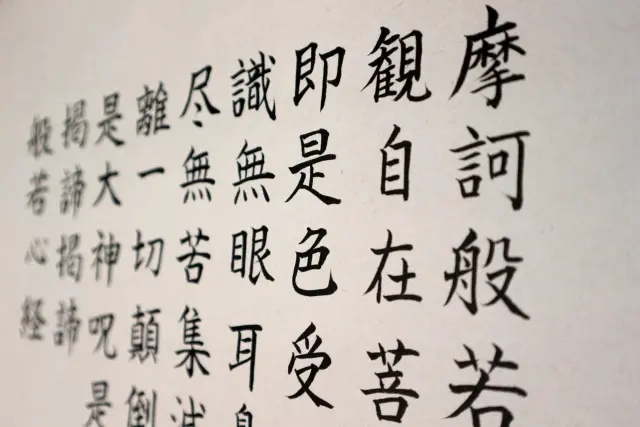 摩訶般若
観自在菩
即是色受
識無眼耳
尽無苦集
離一切顛倒
是大神呪是
掲諦掲諦
般若心経